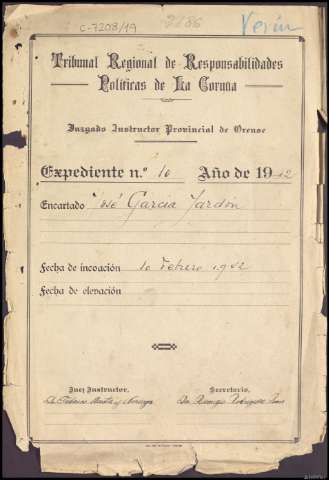 C-7208/19
2186
Verín
Tribunal Regional de Responsabilidades
Políticas de La Coruña
Juzgado Instructor Provincial de Orense
Expediente n.º 10 Año de 1942
Encartado José García Jardón
Fecha de incoación 10 Febrero 1942
Fecha de elevación
Juez Instructor, Secretario,
D. Federico D. Remigio Rodríguez